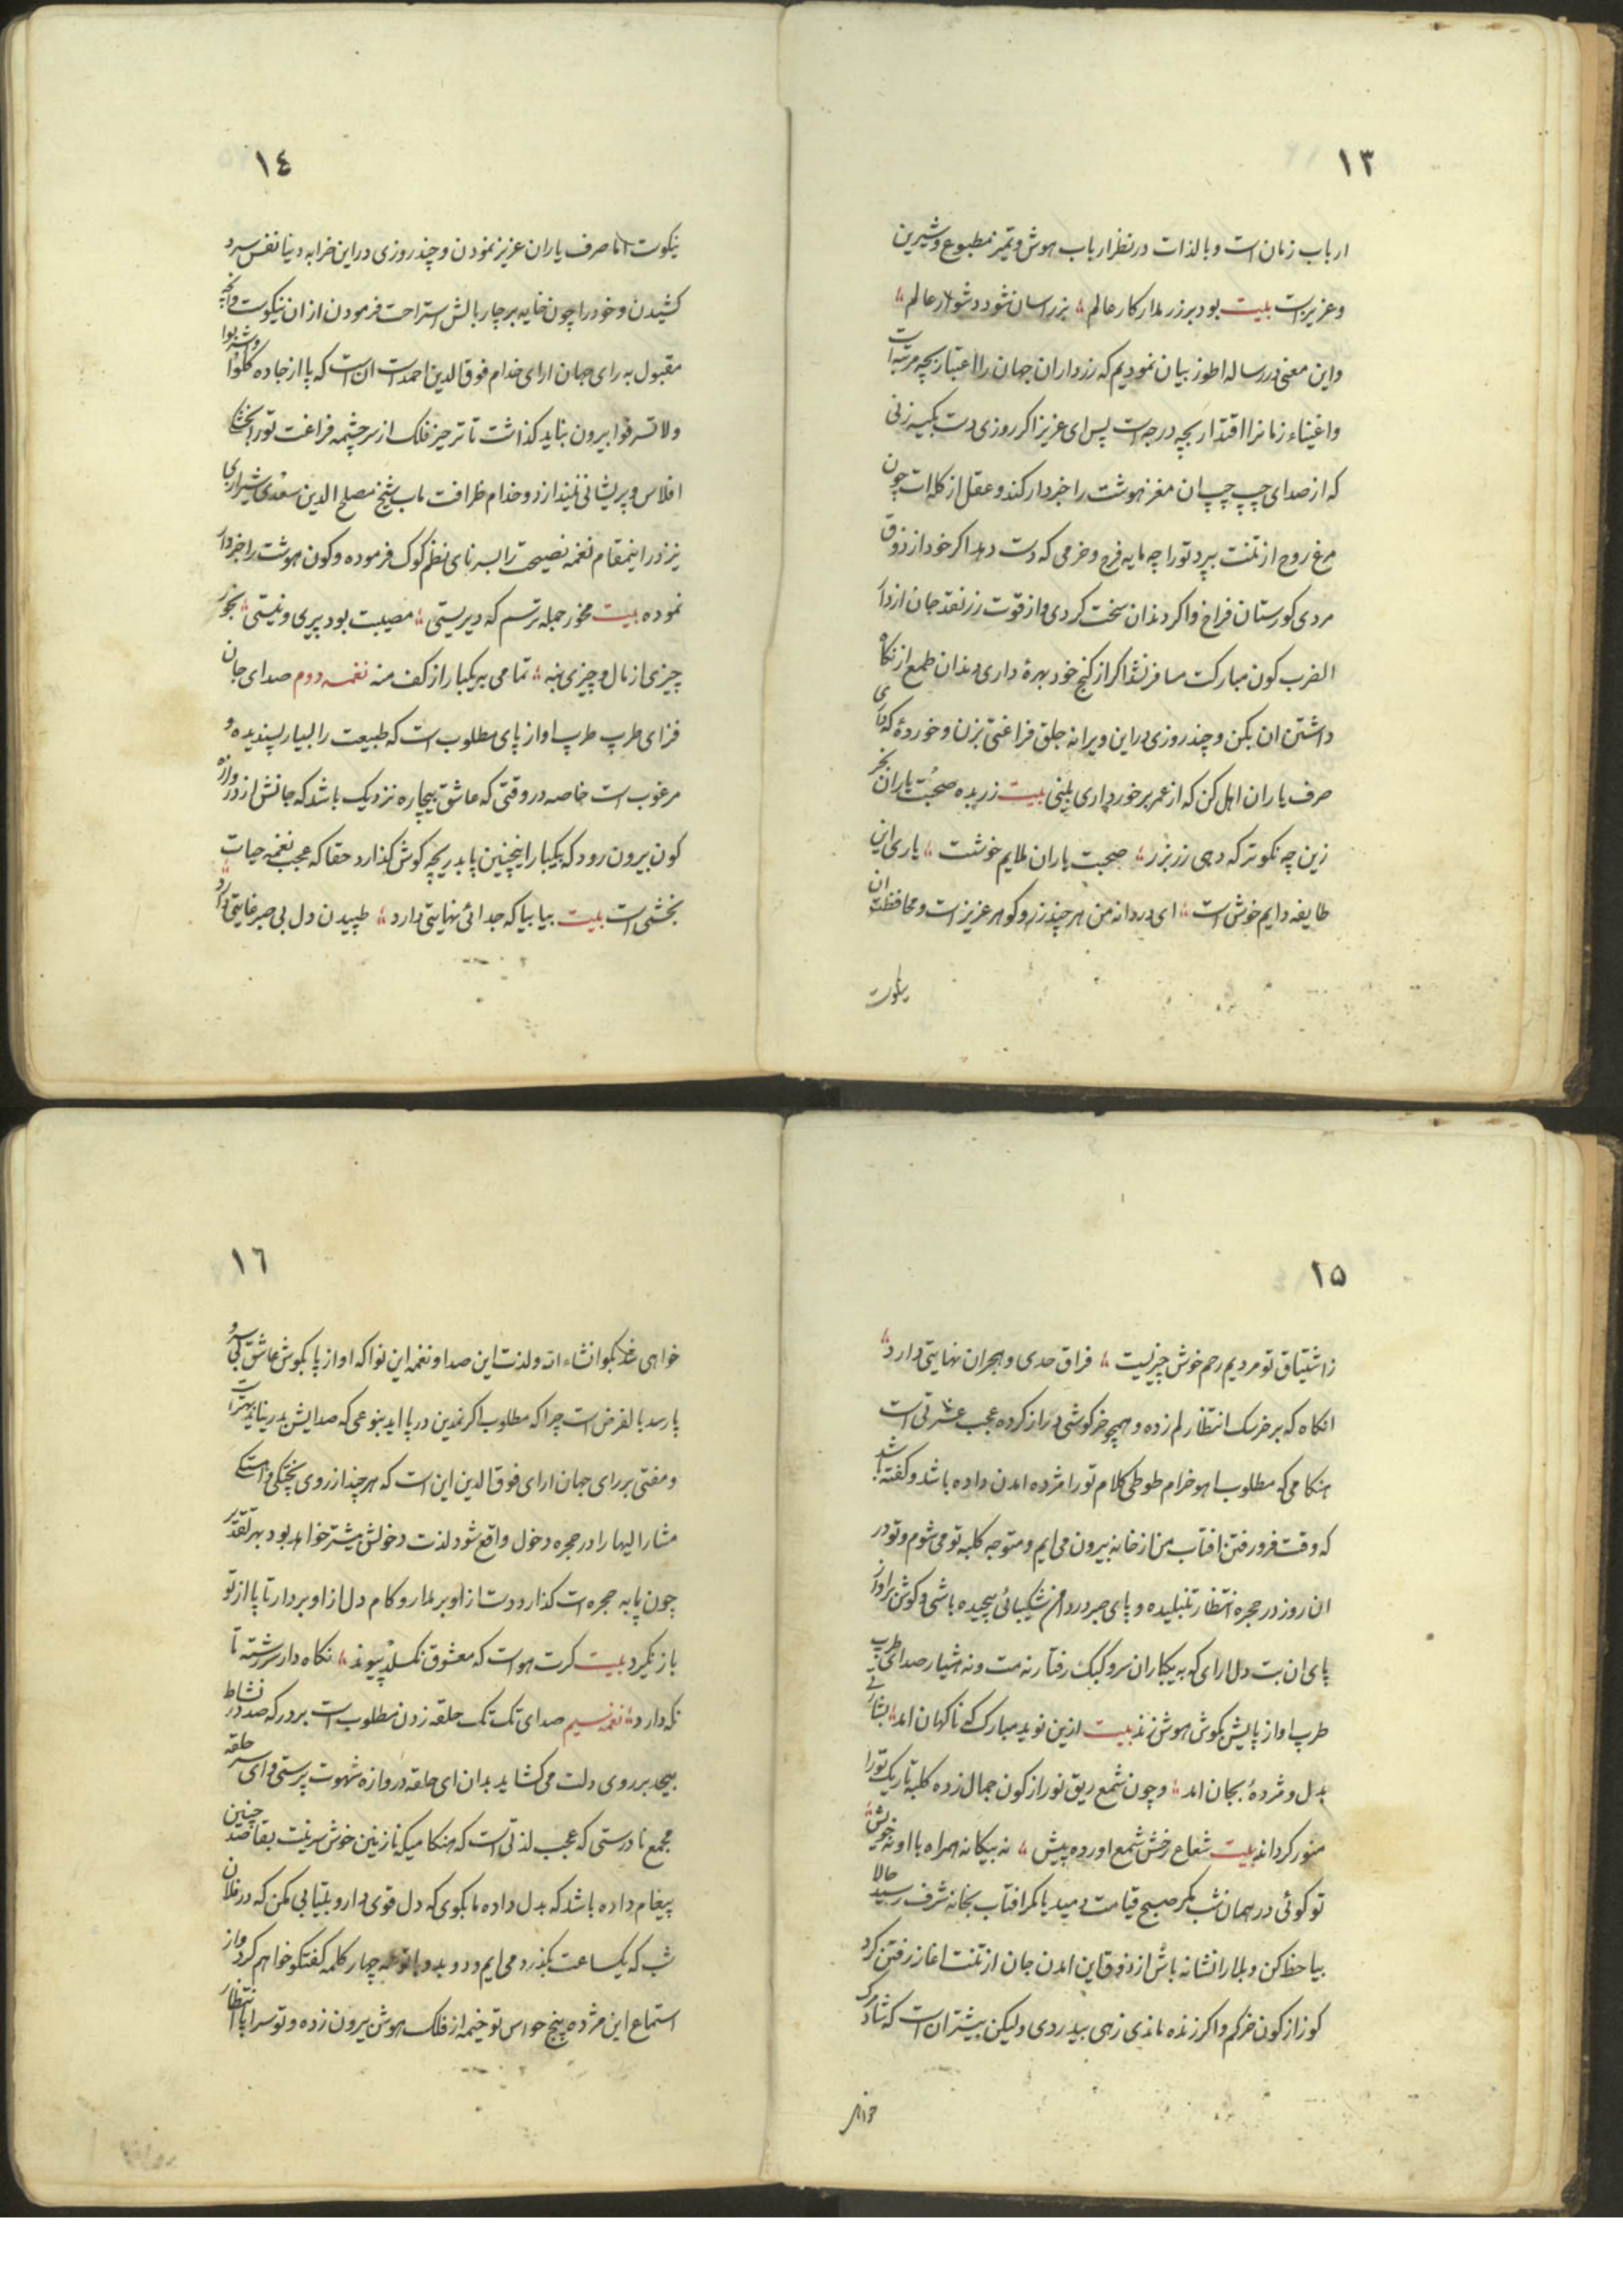 ١٣
ارباب زمان است و بالذات در نظر ارباب هوش و تمیز مطبوع و شیرین
و عزیز است بیت بود بر زر مدار کار عالم ؛ بزر اسان شود دشوار عالم ؛
و این معنی در رساله اطوز بیان نمودیم که زرداران جهان را اعتبار بچه مرتبه است
و اغنیاء زمانرا اقتدار بچه درجه است پس ای عزیز اکر روزی دست بکیسه زنی
که از صدای چپ چپ ان مغز هوشت را خبردار کند و عقل از کله ات چون
مرغ روح از تنت بپرد تو را چه مایه فرح و خرمی که دست دهد اکر خود از ذوق
مردی کورستان فراخ و اکر دندان سخت کردی و از قوت زر نقد جان از دار
الضرب کون مبارکت مسافر نشد اکر از کنج خود بهرهٔ داری دندان طمع از نکاه
داشتن ان بکن و چند روزی در این ویرانه جلق فراغتی بزن و خوردهٔ که داری
صرف یاران اهل کن که از عمر برخورداری بینی بیت زر بده صحبت یاران بخر
زین چه نکوتر که دهی زر بزر ؛ صحبت یاران ملایم خوشت ؛ یاری این
طایفه دایم خوش است ؛ ای دردانه من هر چند زر و کوهر عزیز است و محافظت ان
نیکوت
١٤
نیکوست اما صرف یاران عزیز نمودن و چند روزی در این خرابه دنیا نفس سرد
کشیدن و خود را چون خایه بر چار بالش استراحت فرمودن از ان نیکوست و انچه
مقبول به رای جهان ارای خدام فوق الدین احمد است ان است که پا از جاده کلوا واشربوا
ولا تسرفوا بیرون نباید کذاشت تا تر حیز فلک از سرچشمه فراغت تو را بخشک
افلاس و پریشانی نیندازد و خدام ظرافت ماب شیخ مصلح الدین سعدی شیرازی
نیز در اینمقام نغمه نصیحت را بسرنای نظم کوک فرموده و کون هوشت را خبردار
نموده بیت مخور جمله ترسم که دیر یستی ؛ مصیبت بود پیری و نیستی ؛ بخور
چیزی از مال و چیزی بنه ؛ تمامی بیکبار از کف منه نغمه دوم صدای جان
فزای طرپ طرپ اواز پای مطلوب است که طبیعت را بسیار پسندیده و
مرغوب است خاصه در وقتی که عاشق بیچاره نزدیک باشد که جانش از دروازه
کون بیرون رود که بیکبار اینچنین پا بدریچه کوش کذارد حقا که عجب نغمه حیات
بخشی است بیت بیا بیا که جدائی نهایتی دارد ؛ طپیدن دل بی صبر غایتی دارد ؛
١٥
ز اشتیاق تو مردیم رحم خوش چیزیست ؛ فراق حدی و هجران نهایتی دارد ؛
انکاه که بر خرسک انتظار لم زده و همچو خر کوشی دراز کرده عجب عشرتی است
هنکامی که مطلوب اهو خرام طوطی کلام تو را مژده امدن داده باشد و کفته باشد
که وقت فرو رفتن افتاب من از خانه بیرون می ایم و متوجه کلبه تو می شوم و تو در
ان روز در حجره انتظار تنبلیده و پای صبر در دامن شکیبائی پیچیده باشی و کوش بر اواز
پای ان بت دل ارای که به یکباران سرو کبک رفتار نه مست و نه هشیار صدای طرپ
طرپ اواز پایش بکوش هوش زند بیت ازین نوید مبارک که ناکهان امد ؛ بشارتی
بدل و مژدهٔ بجان امد ؛ و چون شمع ریق نور از کون جمال زده کلبه تاریک تو را
منور کرداند بیت شعاع رخش شمع اورده پیش ؛ نه بیکانه همراه با او نه خویش ؛
تو کوئی در همان شب مکر صبح قیامت دمید یا مکر افتاب بخانه شرف رسید حالا
بیا حظ کن و بلا را نشانه باش از ذوق این امدن جان از تنت اغاز رفتن کرد
کوز از کون خرکم و اکر زنده ماندی زهی بیدردی ولیکن بیشتر ان است که شاد مرک
خواهی
١٦
خواهی شد بکو انشاء الله و لذت این صدا و نغمه این نوا که اواز پا بکوش عاشق بی سر و
پا رسد بالفرض است چرا که مطلوب اکر نمدین در پا اید بنوعی که صدایش بدر نیاید بهتر است
و مفتی بر رای جهان ارای فوق الدین این است که هر چند از روی پختکی و اهستکی
مشار الیها را در حجره دخول واقع شود لذت دخولش بیشتر خواهد بود بهر تقدیر
چون پا به حجره است کذارد دست از او بر مدار و کام دل از او بردار تا پا از تو
باز نکیرد بیت کرت هواست که معشوق نکسلد پیوند ؛ نکاه دار سر رشته تا
نکه دارد ؛ نغمه سیم صدای تک تک حلقه زدن مطلوب است بر در که صد در نشاط
بیحد بر روی دلت می کشاید بدان ای حلقه دروازه شهوت پرستی و ای سر حلقه
مجمع نادرستی که عجب لذتی است که هنکامیکه نازنین خوش سرینت بقاصد چنین
پیغام داده باشد که بدل داده ما بکوی که دل قوی دار و بیتابی مکن که در فلان
شب که یک ساعت بکذرد می ایم و دو بدو با تو سه چهار کلمه کفتکو خواهم کرد و از
استماع این مژده پنج حواس تو خیمه از فلک هوش بیرون زده و تو سراپا انتظار